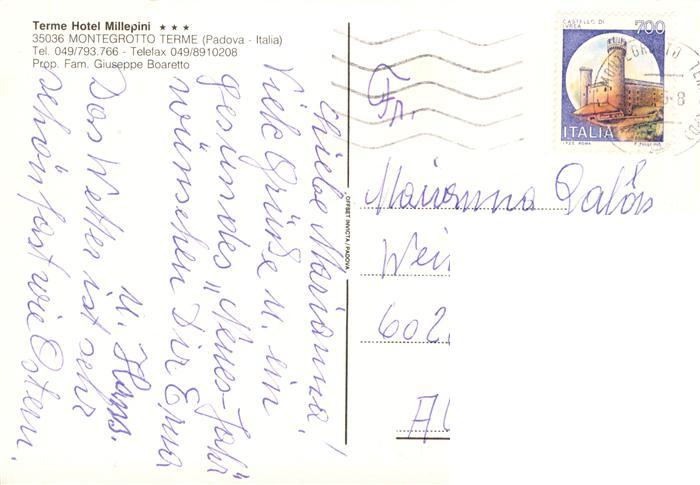 Terme Hotel Millepini ★ ★ ★
35036 MONTEGROTTO TERME (Padova - Italia)
Tel. 049/793.766 - Telefax 049/8910208
Prop. Fam. Giuseppe Boaretto
Liebe Marianna!
Viele Grüße u. ein
gesundes "Neues-Jahr"
wünschen Dir Erna
u. Hans.
Das Wetter ist sehr
schön fast wie Ostern.
OFFSET INVICTA/PADOVA
CASTELLO DI
IVREA
700
ITALIA
MONTEGROTTO
Fr.
Marianna
Wei
602